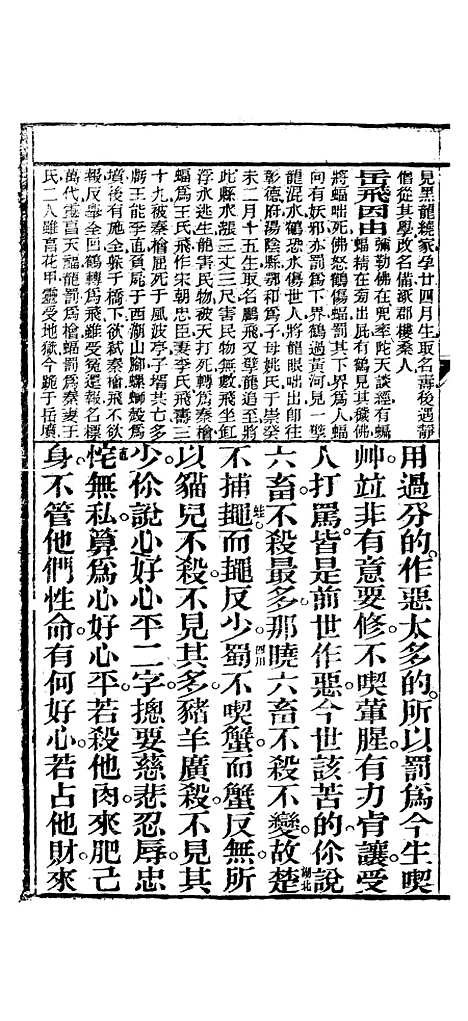 見黑龍繞家孕廿四月生取名壽後遇靜
僧從其學改名備誠郡樓桑人
岳飛因由 彌勒佛在兜率陀天談經有蝠
蝠精在菊出屁有鶴見其穢佛
將蝠咄死佛怒鶴傷蝠罰其下界爲人蝠
向有妖邪亦罰爲下界鶴過黃河見一孽
龍混水鶴恐水傷世人將龍眼咄出卽往
彰德府湯陰縣鄂和爲子母姚氏于崇癸
未二月十五生取名鵬飛又孽龍追至將
此縣水漲三丈三尺害民物無數飛坐缸
浮水逃生龍害民物被天打死轉爲秦檜
蝠爲王氏飛作宋朝忠臣妻李氏飛壽三
十九被秦檜屈死于風波亭子壻共亡多
虧王能李直負屍于西湖山腳螺螄殼爲
墳後有施全躲于橋下欲弑秦檜飛不欲
報反舉全回鶴轉爲飛雖受冤還報名標
萬代靈昌天福龍罰爲檜蝠罰爲秦妻王
氏二人雖昌花甲靈受地獄今跪于岳墳
用過分的。作惡太多的。所以罰爲今生喫
帥竝非有意要修。不喫葷腥。有力肯讓。受
人打罵。皆是前世作惡。今世該苦的。你說
六畜不殺最多。那曉六畜不殺不變。故楚湖北
不捕蠅蛙而蠅反少。蜀四川不喫蟹而蟹反無。所
以貓兒不殺。不見其多。豬羊廣殺。不見其
少。你說心好心平二字。揔要慈悲忍辱。忠
恠直無私。算爲心好心平。若殺他肉來肥己
身。不管他們性命。有何好心。若占他財來